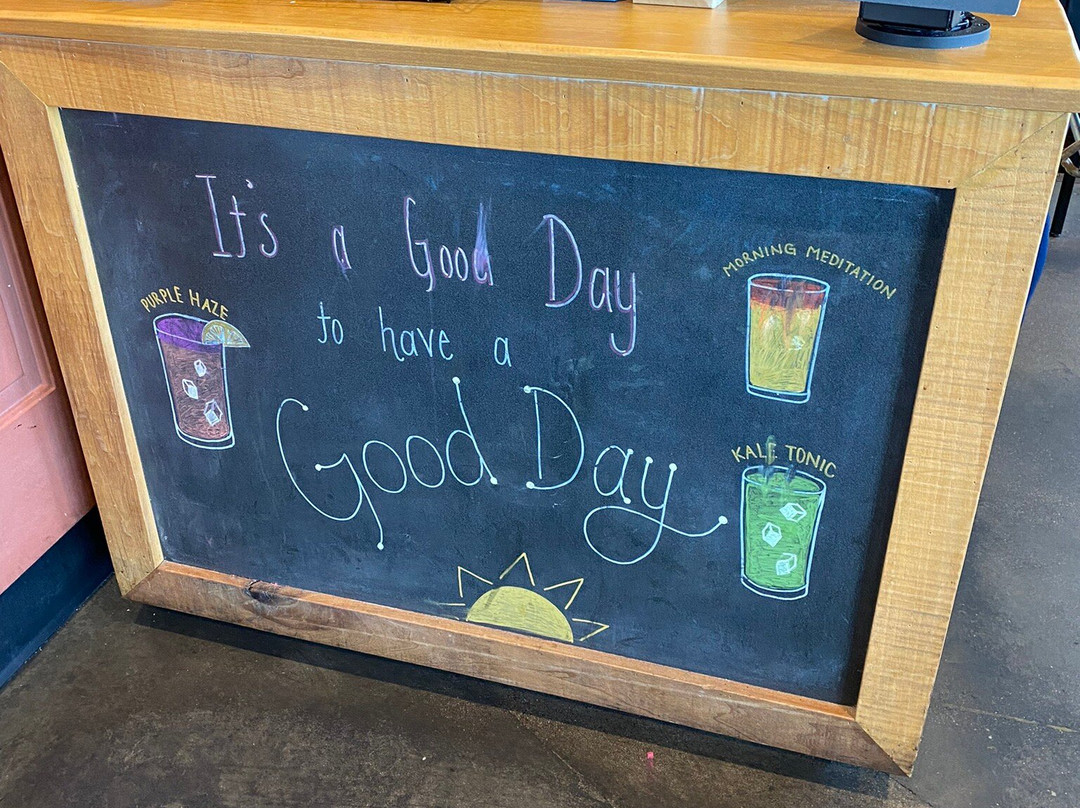 It's a Good Day
to have a
Good Day
PURPLE HAZE
MORNING MEDITATION
KALE TONIC